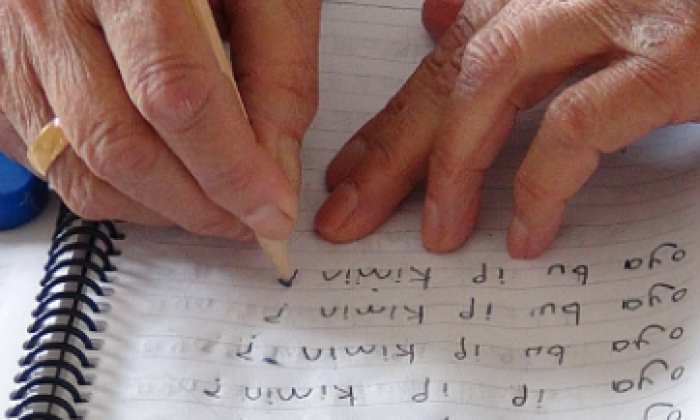 oya ip ip kimin ?
oya bu ip kimin ?
oya bu ip kimin ?
oya bu ip kimin